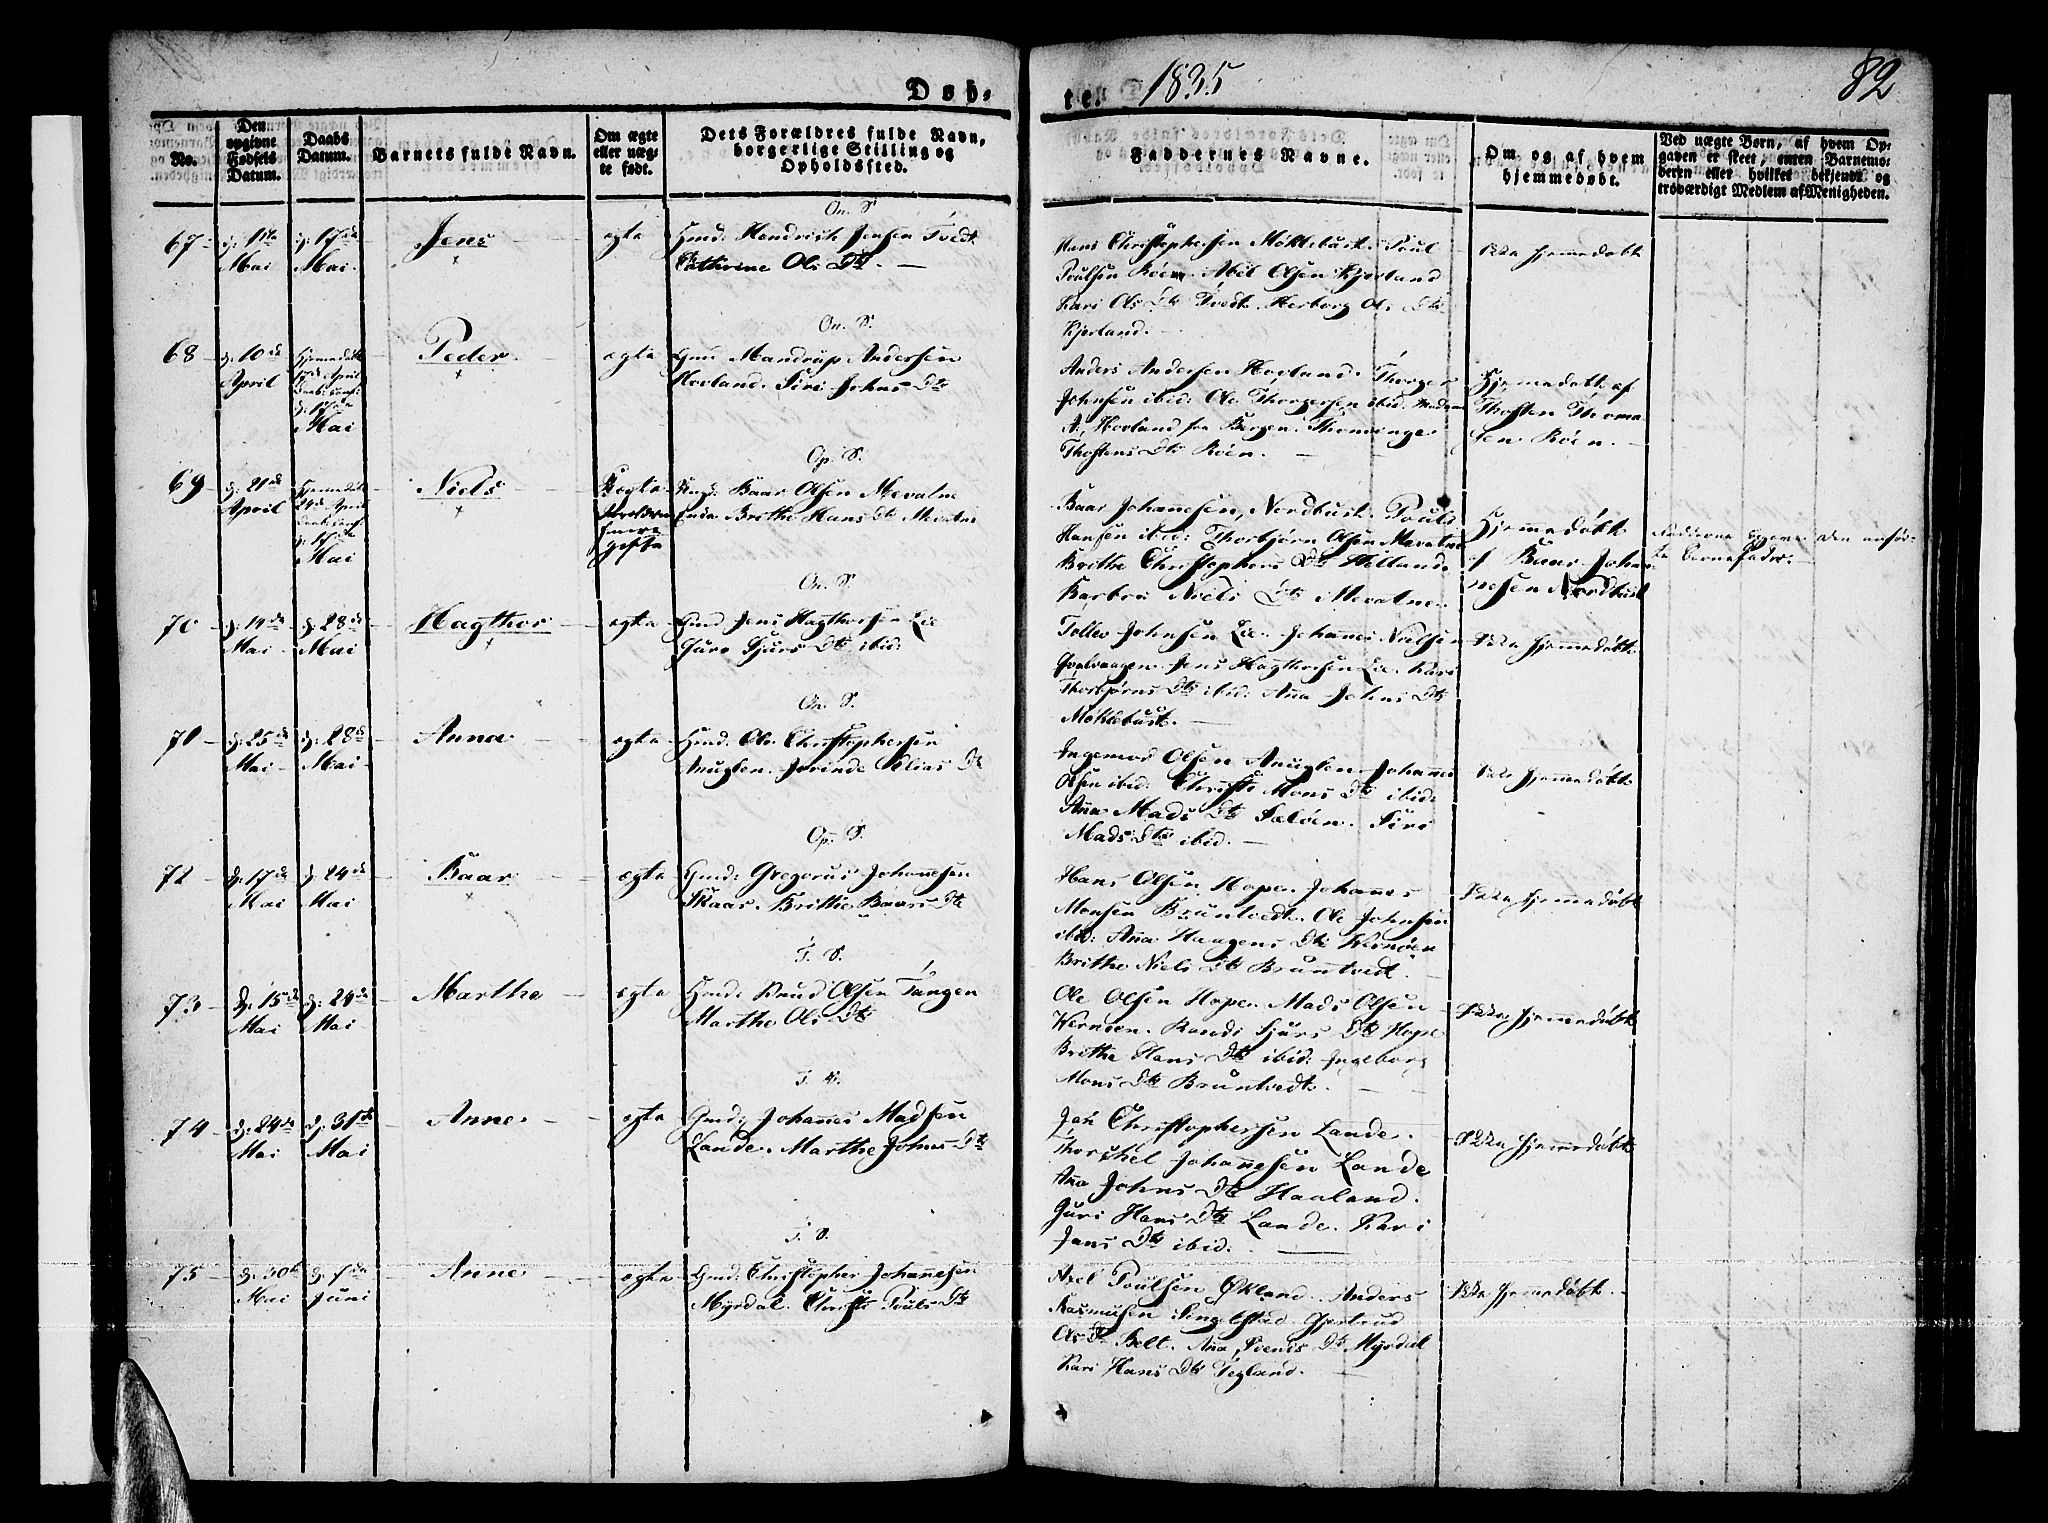 Døb-
te. 1835
82
No.
Den opgivne Fødsels Datum.
Daabs Datum.
Barnets fulde Navn.
Om ægte eller uægte født.
Dets Forældres fulde Navn, borgerlige Stilling og Opholdssted.
Faddernes Navne.
Om og af hvem hjemmedøbt.
Ved uægte Børn, af hvem Opgaven er skeet; enten Barnemoderen eller hvilket bekjendt og troværdigt Medlem af Menigheden.
On. S.
67 Mai d: 17de Mai Jens ægte Gmd: Hendrich Jensen Tvedt
Cathrine Ols Dtr.
Hans Christophersen Møklebust. Poul
Poulsen Røen. Abel Olsen Kjerland
Kari Ols Dtr Tvedt. Herborg Ols Dtr
Kjerland.
Ikke hjemmedøbt
On. S.
68 d: 10de April Hjemmedøbt April d: 17de Mai Peder ægte Mandrup Andersen
Hovland. Siri Johns Dtr
Anders Andersen Hovland. Thorger
Johnsen ibid: Ole Thorgersen ibid. Madame
A. Hovland fra Bergen.
Thostens Dtr Røen.
Hjemmedøbt af
Thosten Thoma
sen Røen.
Op. S.
69 d: 21de April Hjemmedøbt 24de April d: 17de Mai Niels Baar Olsen Mevatne
Brithe Hans Dtr Mevatne
Baar Johannesen Nordbust. Pouls
Hansen ibid: Thorbjørn Olsen Mevatne
Brithe Christophers Dtr Helland.
Barbro Niels Dtr Mevatne.
Hjemmedøbt
af Baar Johan
nesen Nordbust
Barnefader.
On. S.
70 d: 14de Mai d: 28de Mai Hagthor ægte Gmd Jens Hagthorsen Lie
Guro Sjurs Dtr ibid:
Tollev Johnsen Lie. Johannes Nielsen
Jens Hagthorsen Lie. Kari
Thorbjørns Dtr ibid: Anna Johns Dtr
Møklebust.
Ikke hjemmedøbt
On. S.
71 d: 25de Mai d: 28de Mai Anna ægte Gmd. Ole Christophersen
Anuglen. Elias Dtr
Ingemor Olsen Anuglen. Johannes
Olsen ibid: Christi Mons Dtr ibid:
Anna Mads Dtr Sæløen. Siri
Mads Dtr ibid.
Ikke hjemmedøbt
Op. S.
72 d: 17de Mai d: 24de Mai Baar ægte Gmd: Gregorus Johannesen
Skaar. Brithe Baars Dtr
Hans Olsen Hope. Johannes
Monsen Bruntvedt. Ole Johnsen
ibid: Anna Haagens Dtr Wernøen
Brithe Niels Dtr Bruntvedt.
Ikke hjemmedøbt
T. S.
73 d: 15de Mai d: 24de Mai Marthe ægte Gmd: Knud Olsen Tangen
Marthe Ols Dtr
Ole Olsen Hope. Mads Olsen
Wernøen. Randi Sjurs Dtr Hope
Brithe Hans Dtr ibid: Ingeborg
Mons Dtr Bruntvedt.
Ikke hjemmedøbt
74 d: 24de Mai d: 31te Mai Anne ægte Gmd: Johannes Madsen
Lande. Marthe Johns Dtr
Jon Christophersen Lande.
Thorchel Johannesen Lande
Anna Johns Dtr Haaland.
Guri Hans Dtr Lande. Kari
Jans Dtr ibid.
Ikke hjemmedøbt
T. S.
75 d: 30te Mai d: 7de Juni Anne ægte Gmd: Christopher Johannesen
Myrdal. Christi Pouls Dtr
Axel Poulsen Økland. Anders
Rasmusen Singelstad. Gjertrud
Ols Dtr Belt. Anna Svends Dtr Myrdal
Kari Hans Dtr Tegland.
Ikke hjemmedøbt.